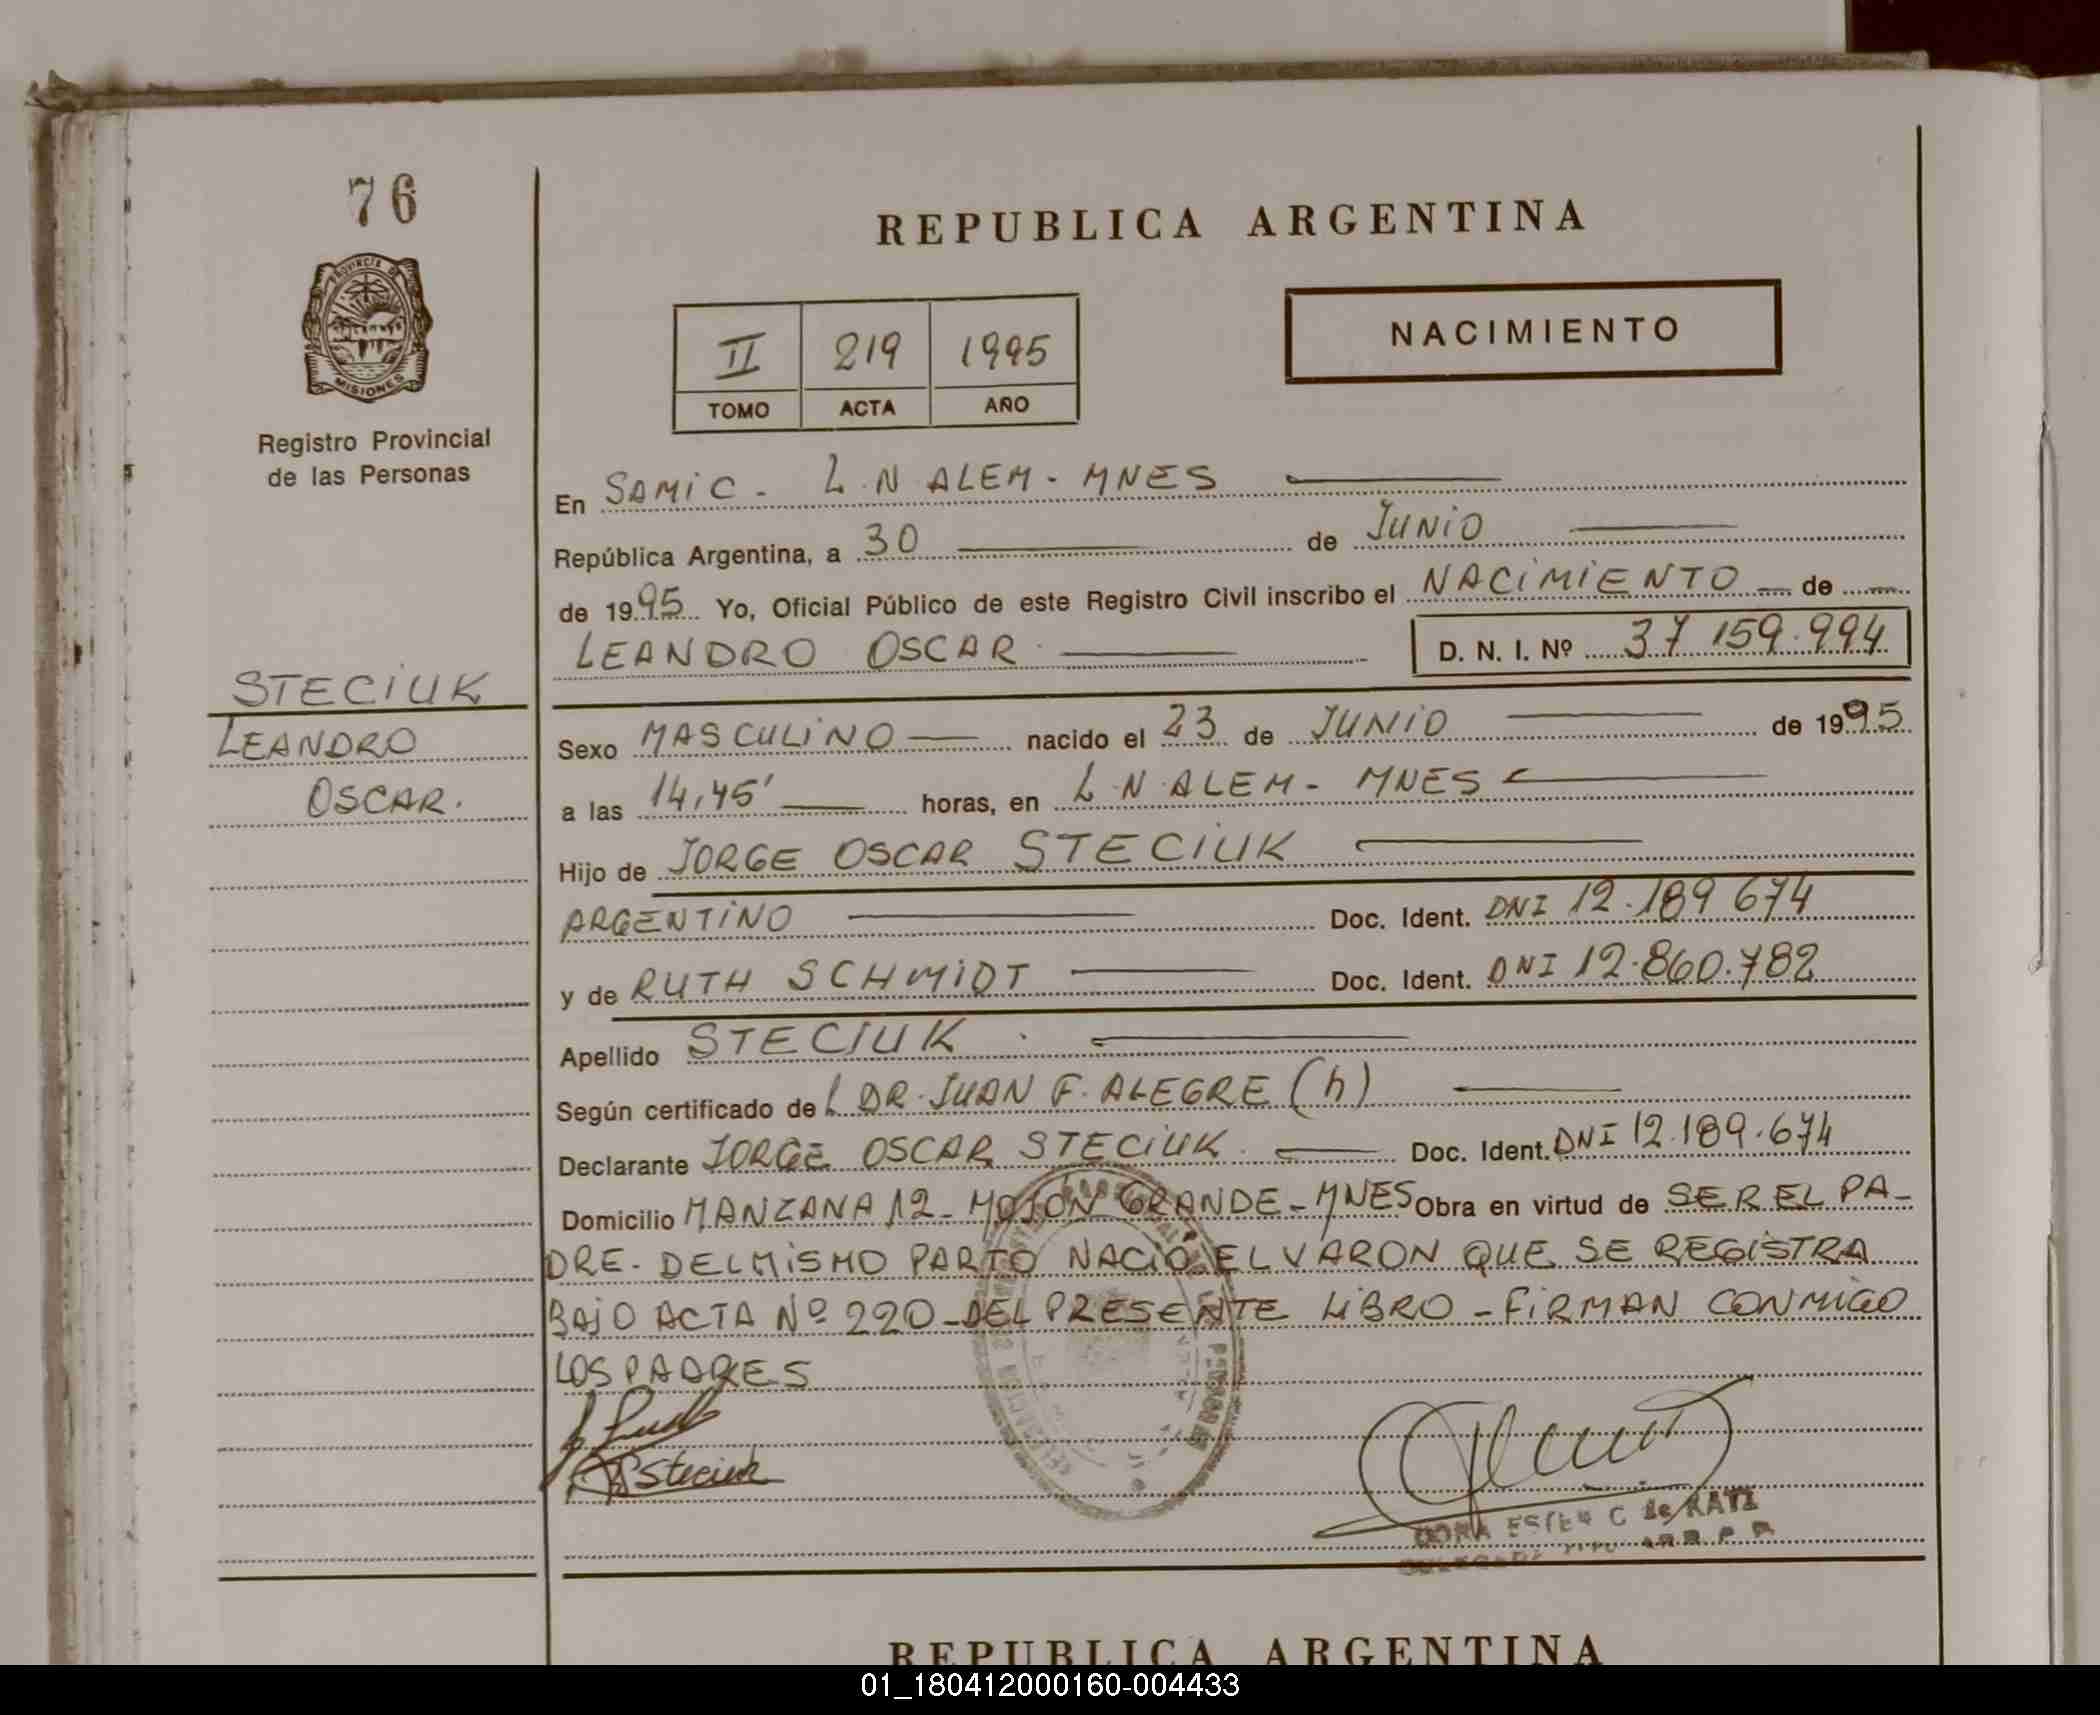 76
PROVINCIA DE
MISIONES
Registro Provincial
de las Personas
REPUBLICA ARGENTINA
II 219 1995
TOMO ACTA AÑO
NACIMIENTO
En SAMIC - L.N ALEM - MNES
República Argentina, a 30 de JUNIO
de 1995 Yo, Oficial Público de este Registro Civil inscribo el NACIMIENTO de
LEANDRO OSCAR D. N. I. Nº 37 159.994
STECIUK
LEANDRO
OSCAR.
Sexo MASCULINO nacido el 23 de JUNIO de 1995
a las 14,45' horas, en L.N.ALEM - MNES
Hijo de JORGE OSCAR STECIUK
ARGENTINO Doc. Ident. DNI 12.189 674
y de RUTH SCHMIDT Doc. Ident. DNI 12.860.782
Apellido STECIUK
Según certificado del DR. JUAN F. ALEGRE (h)
Declarante JORGE OSCAR STECIUK Doc. Ident. DNI 12.189.674
Domicilio MANZANA 12 - MOJON GRANDE - MNES Obra en virtud de SER EL PA-
DRE - DEL MISMO PARTO NACIÓ EL VARON QUE SE REGISTRA
BAJO ACTA Nº 220 - DEL PRESENTE LIBRO - FIRMAN CONMIGO
LOS PADRES
Steciuk
ESTER C de RATZ
REPUBLICA ARGENTINA
01_180412000160-004433